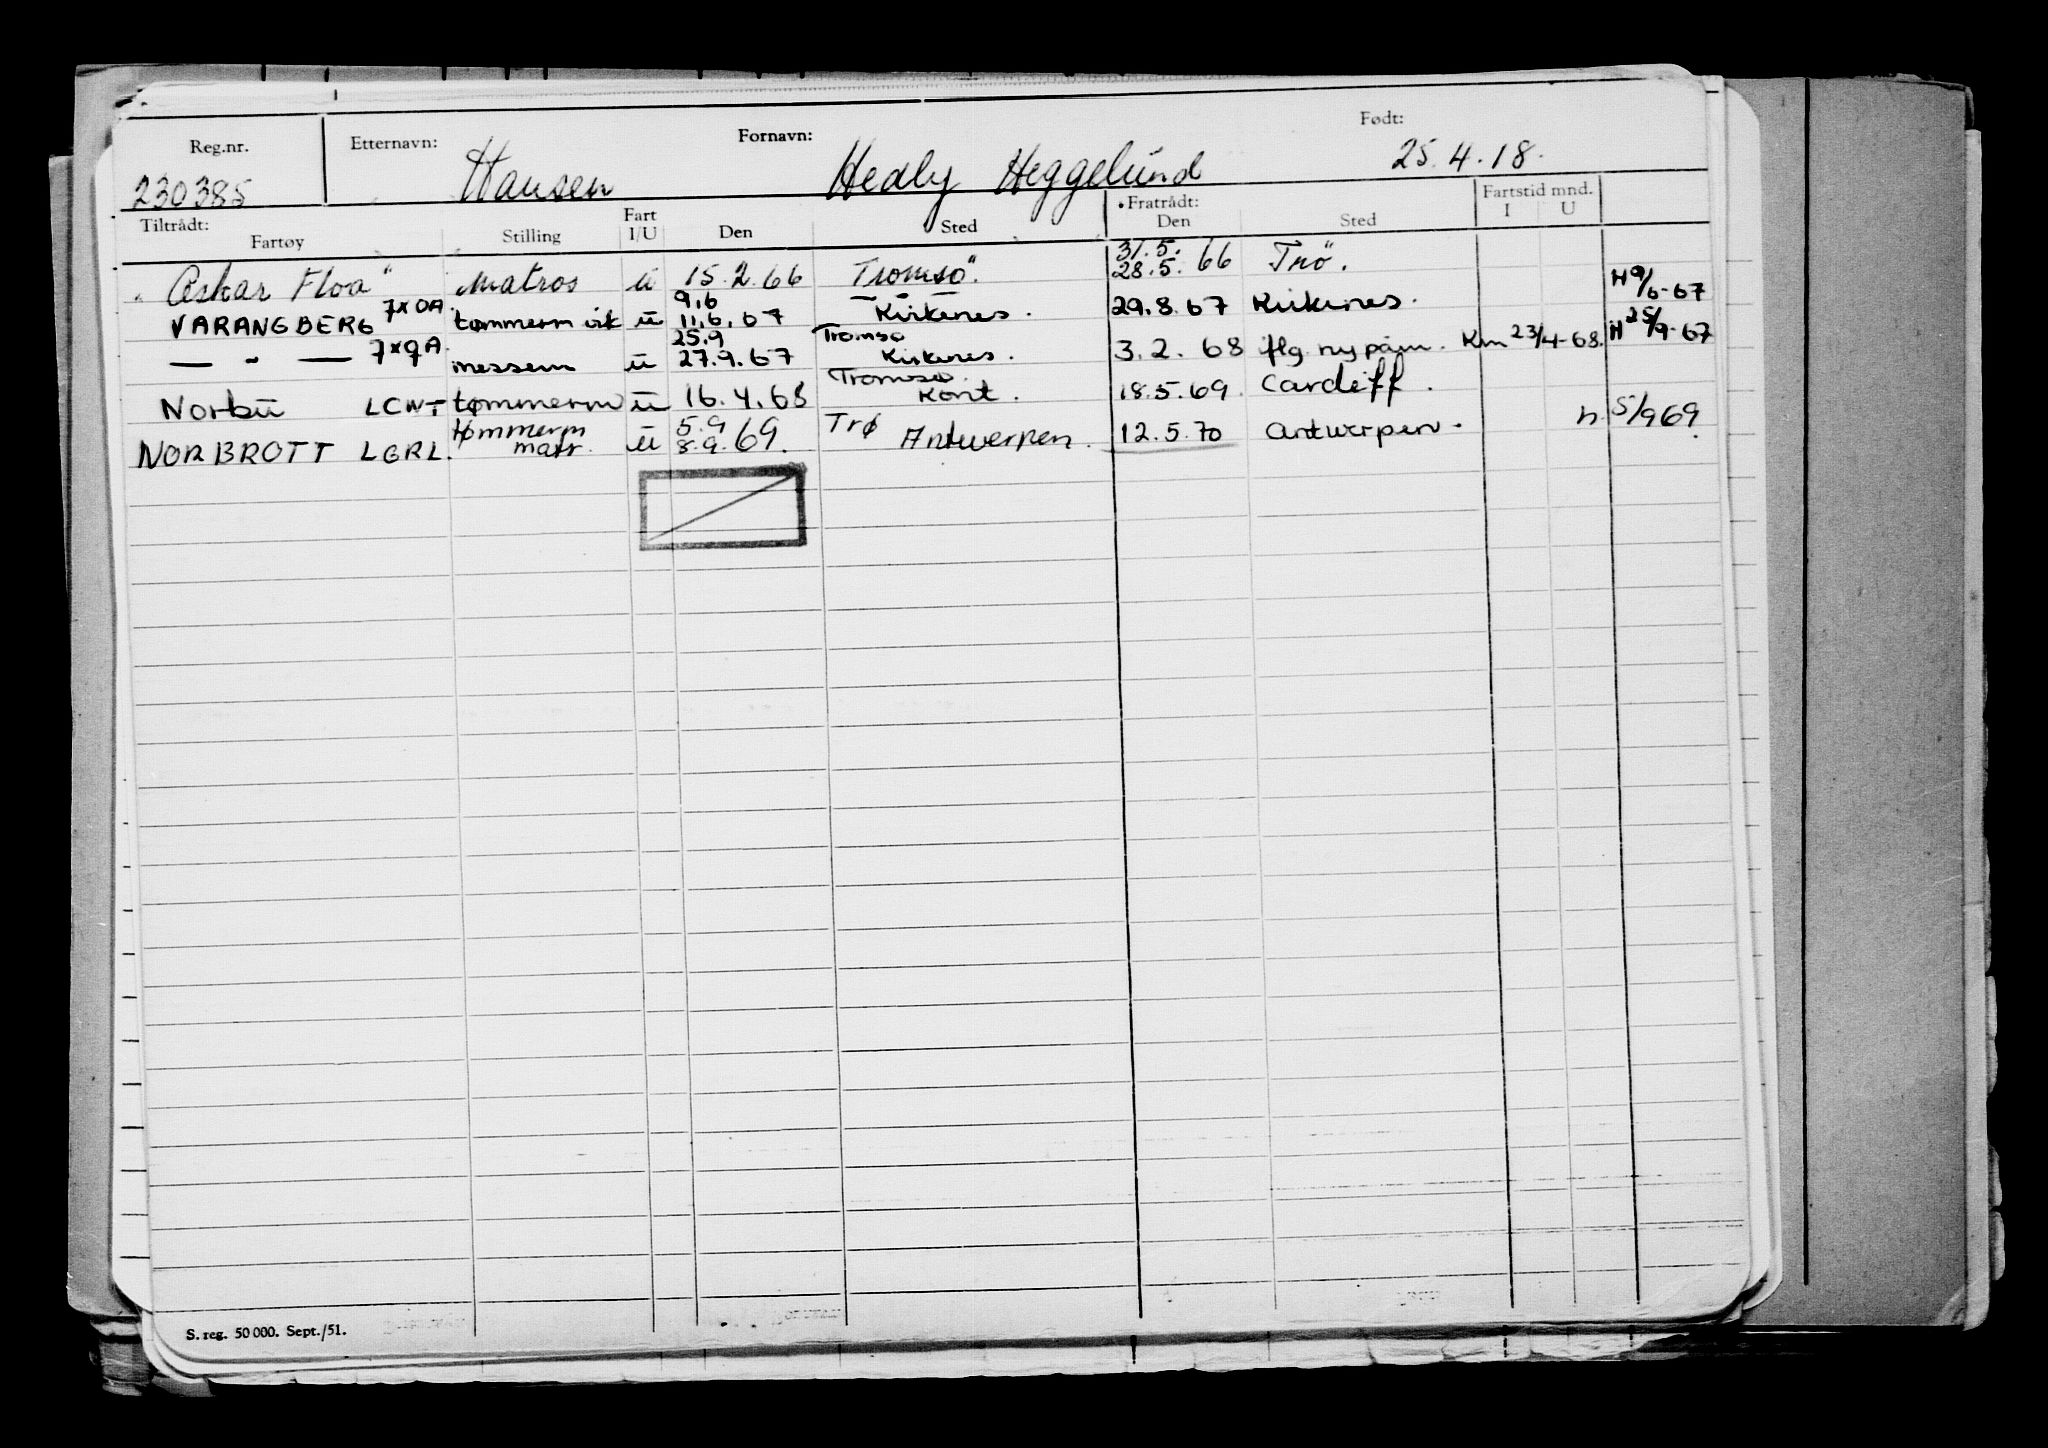 Reg.nr. Etternavn: Fornavn: Født:
230385 Hansen Hedly Heggelund 25.4.18.
Tiltrådt: Fart Fratrådt: Fartstid mnd.
Fartøy Stilling I/U Den Sted Den Sted I U
31.5.
"Oskar Floa" Matros u 15.2.66 Tromsø. 28.5. 66 Trø. H 9/6-67
7XOA 9.6 — — —
VARANGBERG tømmerm vik u 11.6.67 Kirkenes. 29.8.67 Kirkenes.
7XQA. 25.9 Tromsø
— " — messem u 27.9.67 Kirkenes. 3.2.68 flg. ny påm. Km 23/4-68. H 25/9-67
Tromsø.
Norbu LCNT tømmerm u 16.4.68 Kont. 18.5.69. Cardiff.
Tømmerm 5.9 Trø
NORBROTT LGRL. matr. u 8.9.69. Antwerpen. 12.5.70 Antwerpen. n 5/969.
S. reg. 50 000. Sept./51.